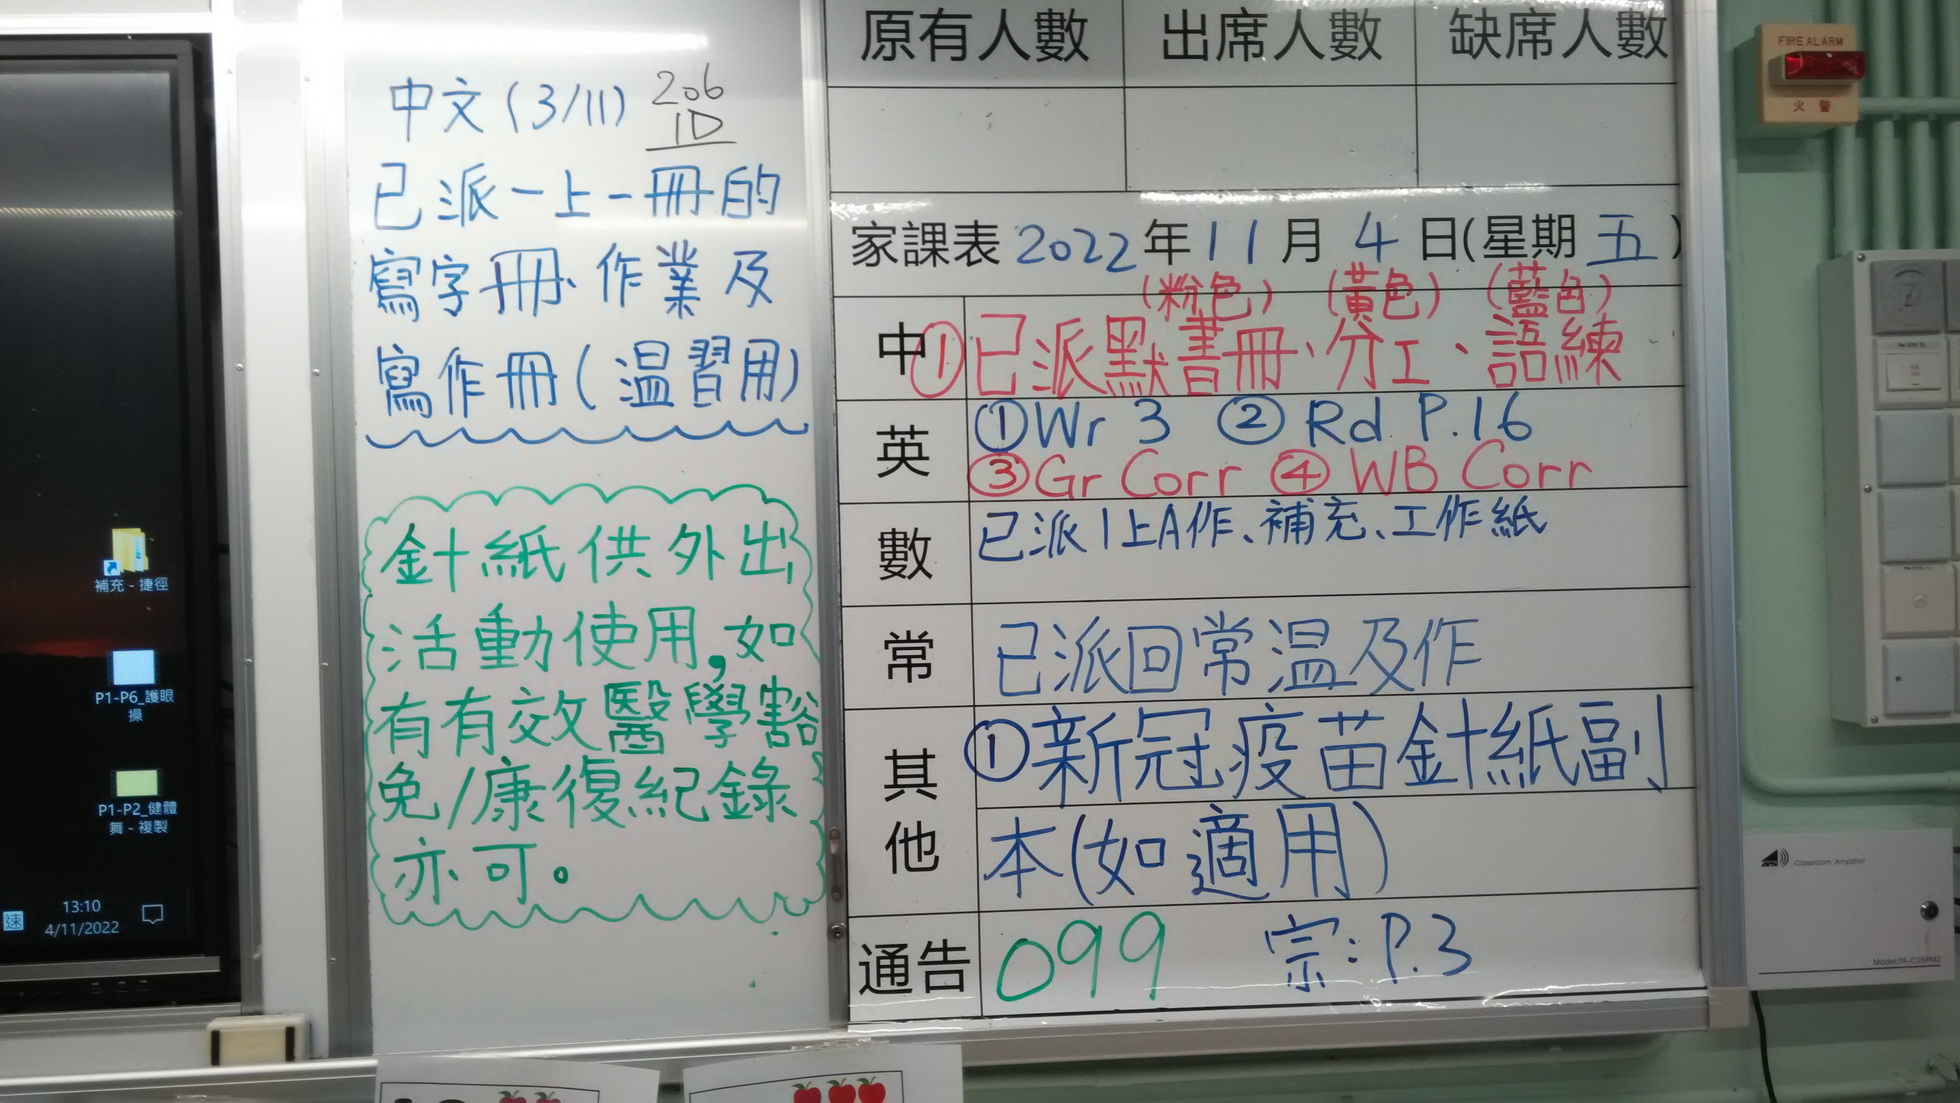 中文(3/11) 206
1D
已派一上一冊的
寫字冊、作業及
寫作冊(温習用)
針紙供外出
活動使用,如
有有效醫學豁
免/康復紀錄
亦可。
原有人數 出席人數 缺席人數
家課表 2022年11月4日(星期五)
(粉色) (黃色) (藍色)
中 ①已派默書冊、分工、語練
英 ①Wr 3 ② Rd P.16
③Gr Corr ④ WB Corr
數 已派1上A作、補充、工作紙
常 已派回常温及作
其他 ①新冠疫苗針紙副
本(如適用)
通告 099 宗:P.3
補充 - 捷徑
P1-P6_護眼
操
P1-P2_健體
舞 - 複製
速 13:10
4/11/2022
FIRE ALARM
火警
Classroom Amplifier
Model:PA-C25PM2